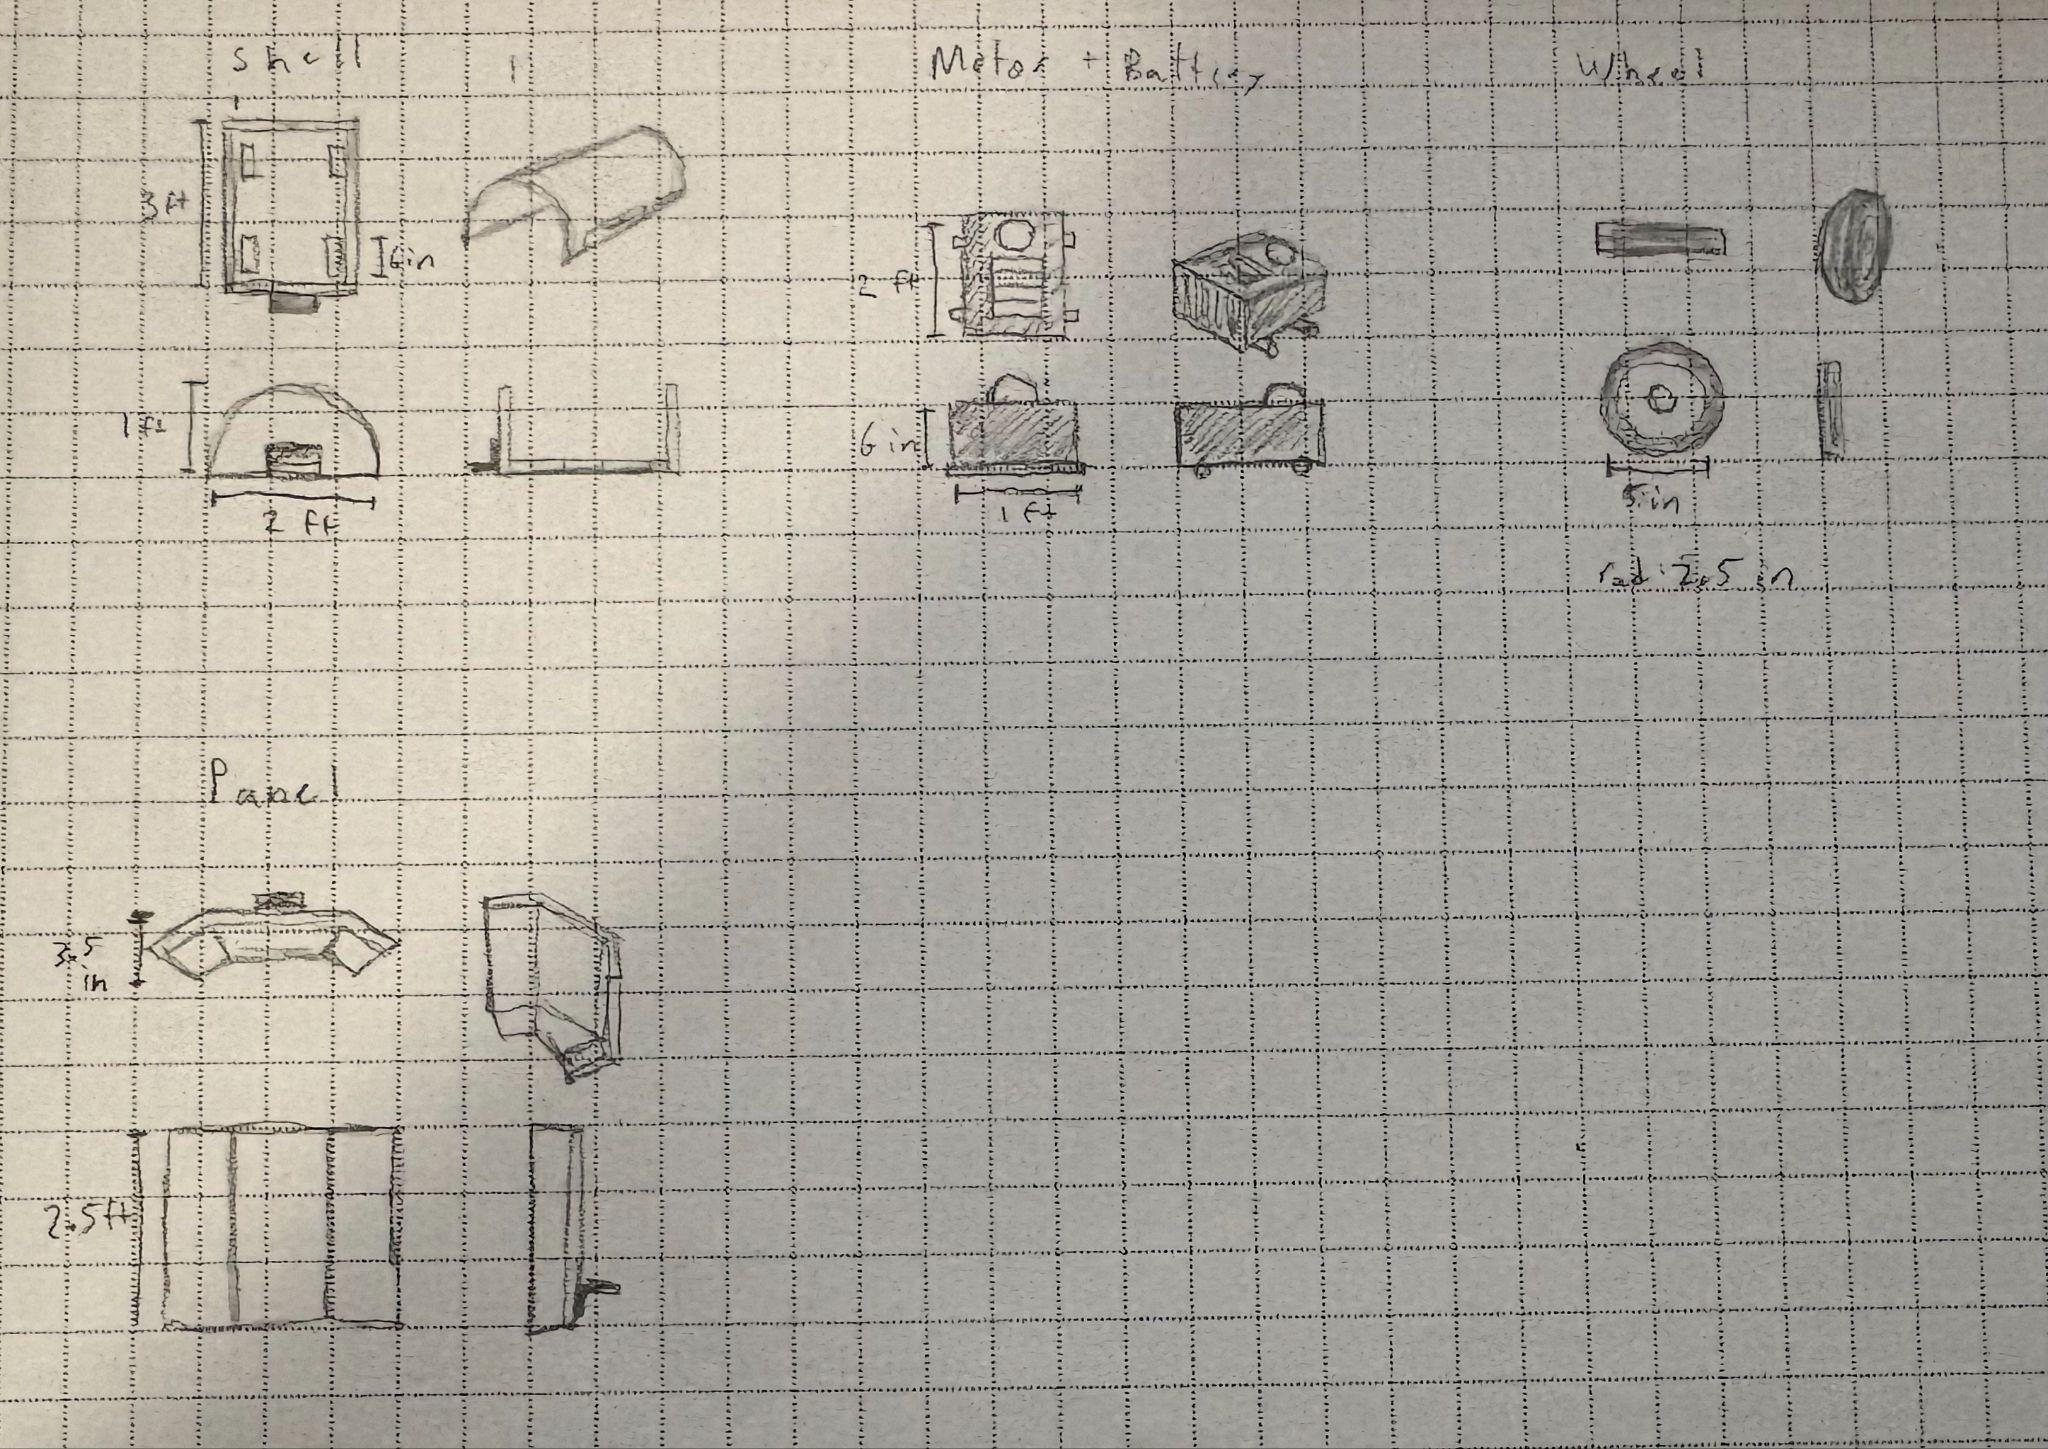 Shell
Motor + Battery
Wheel
3 ft
6in
2 ft
1 ft
6 in
2 ft
1 ft
5 in
rad: 2.5 in
Panel
3.5
in
2.5ft